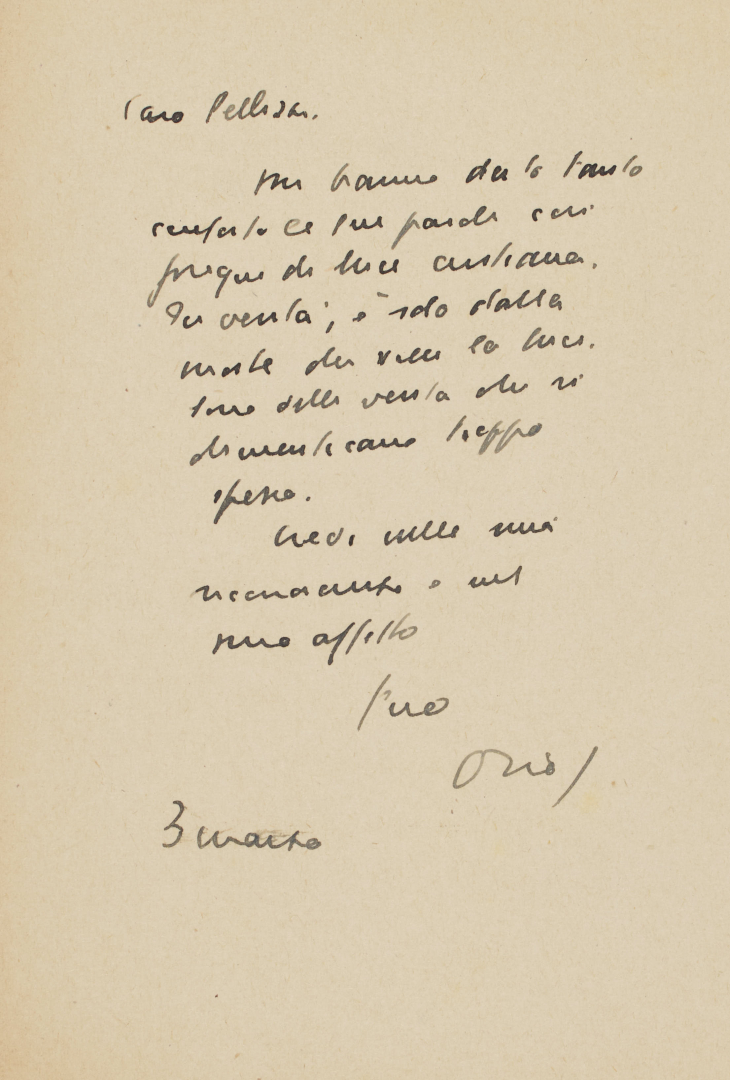 Caro Pellizzi.
mi hanno dato tanto
conforto le tue parole così
pregne di luce cristiana.
In verità, è solo dalla
morte che viene la luce.
Sono delle verità che si
dimenticano troppo
spesso.
Credi nella mia
riconoscenza e nel
mio affetto
Tuo
3 marzo